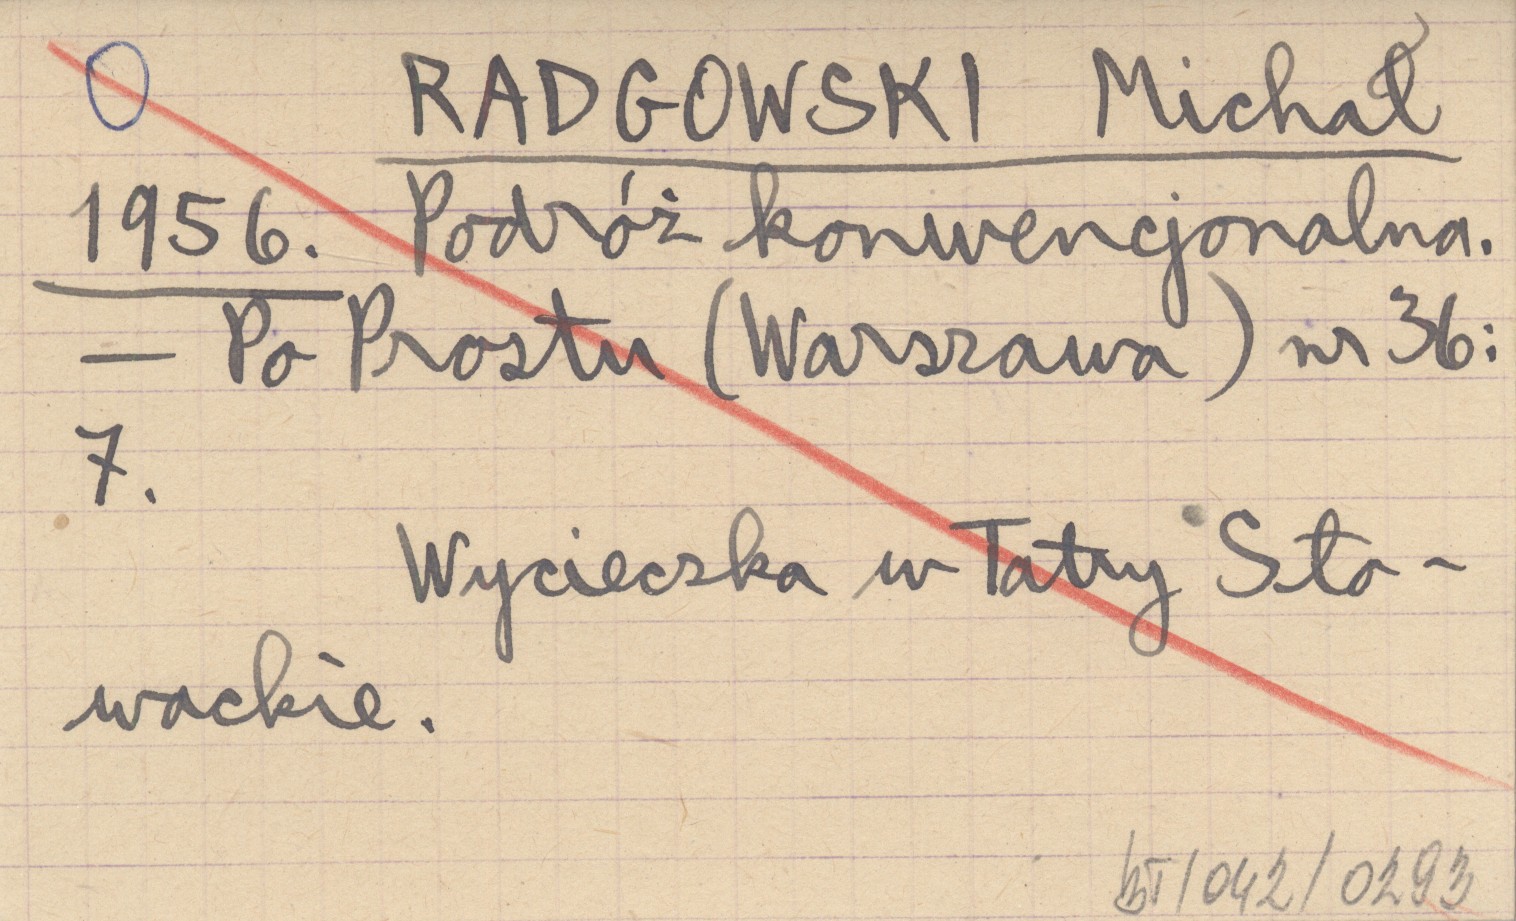 RADGOWSKI Michał
1956. Podróż konwencjonalna.
— Po Prostu (Warszawa) nr 36:
7.
Wycieczka w Tatry Sło-
wackie.
bT/042/0293